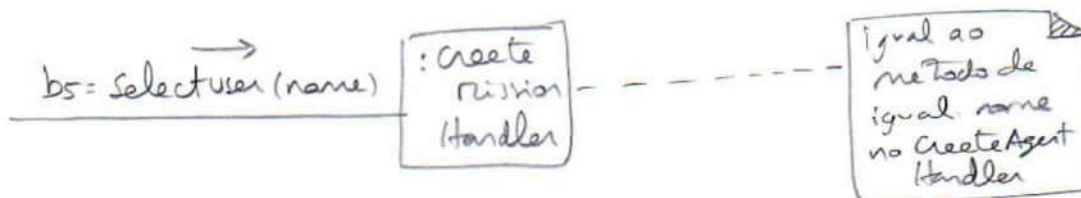 b5= selectuser (name)
: Create
Mission
Handler
igual ao
metodo de
igual nome
no CreateAgent
Handler